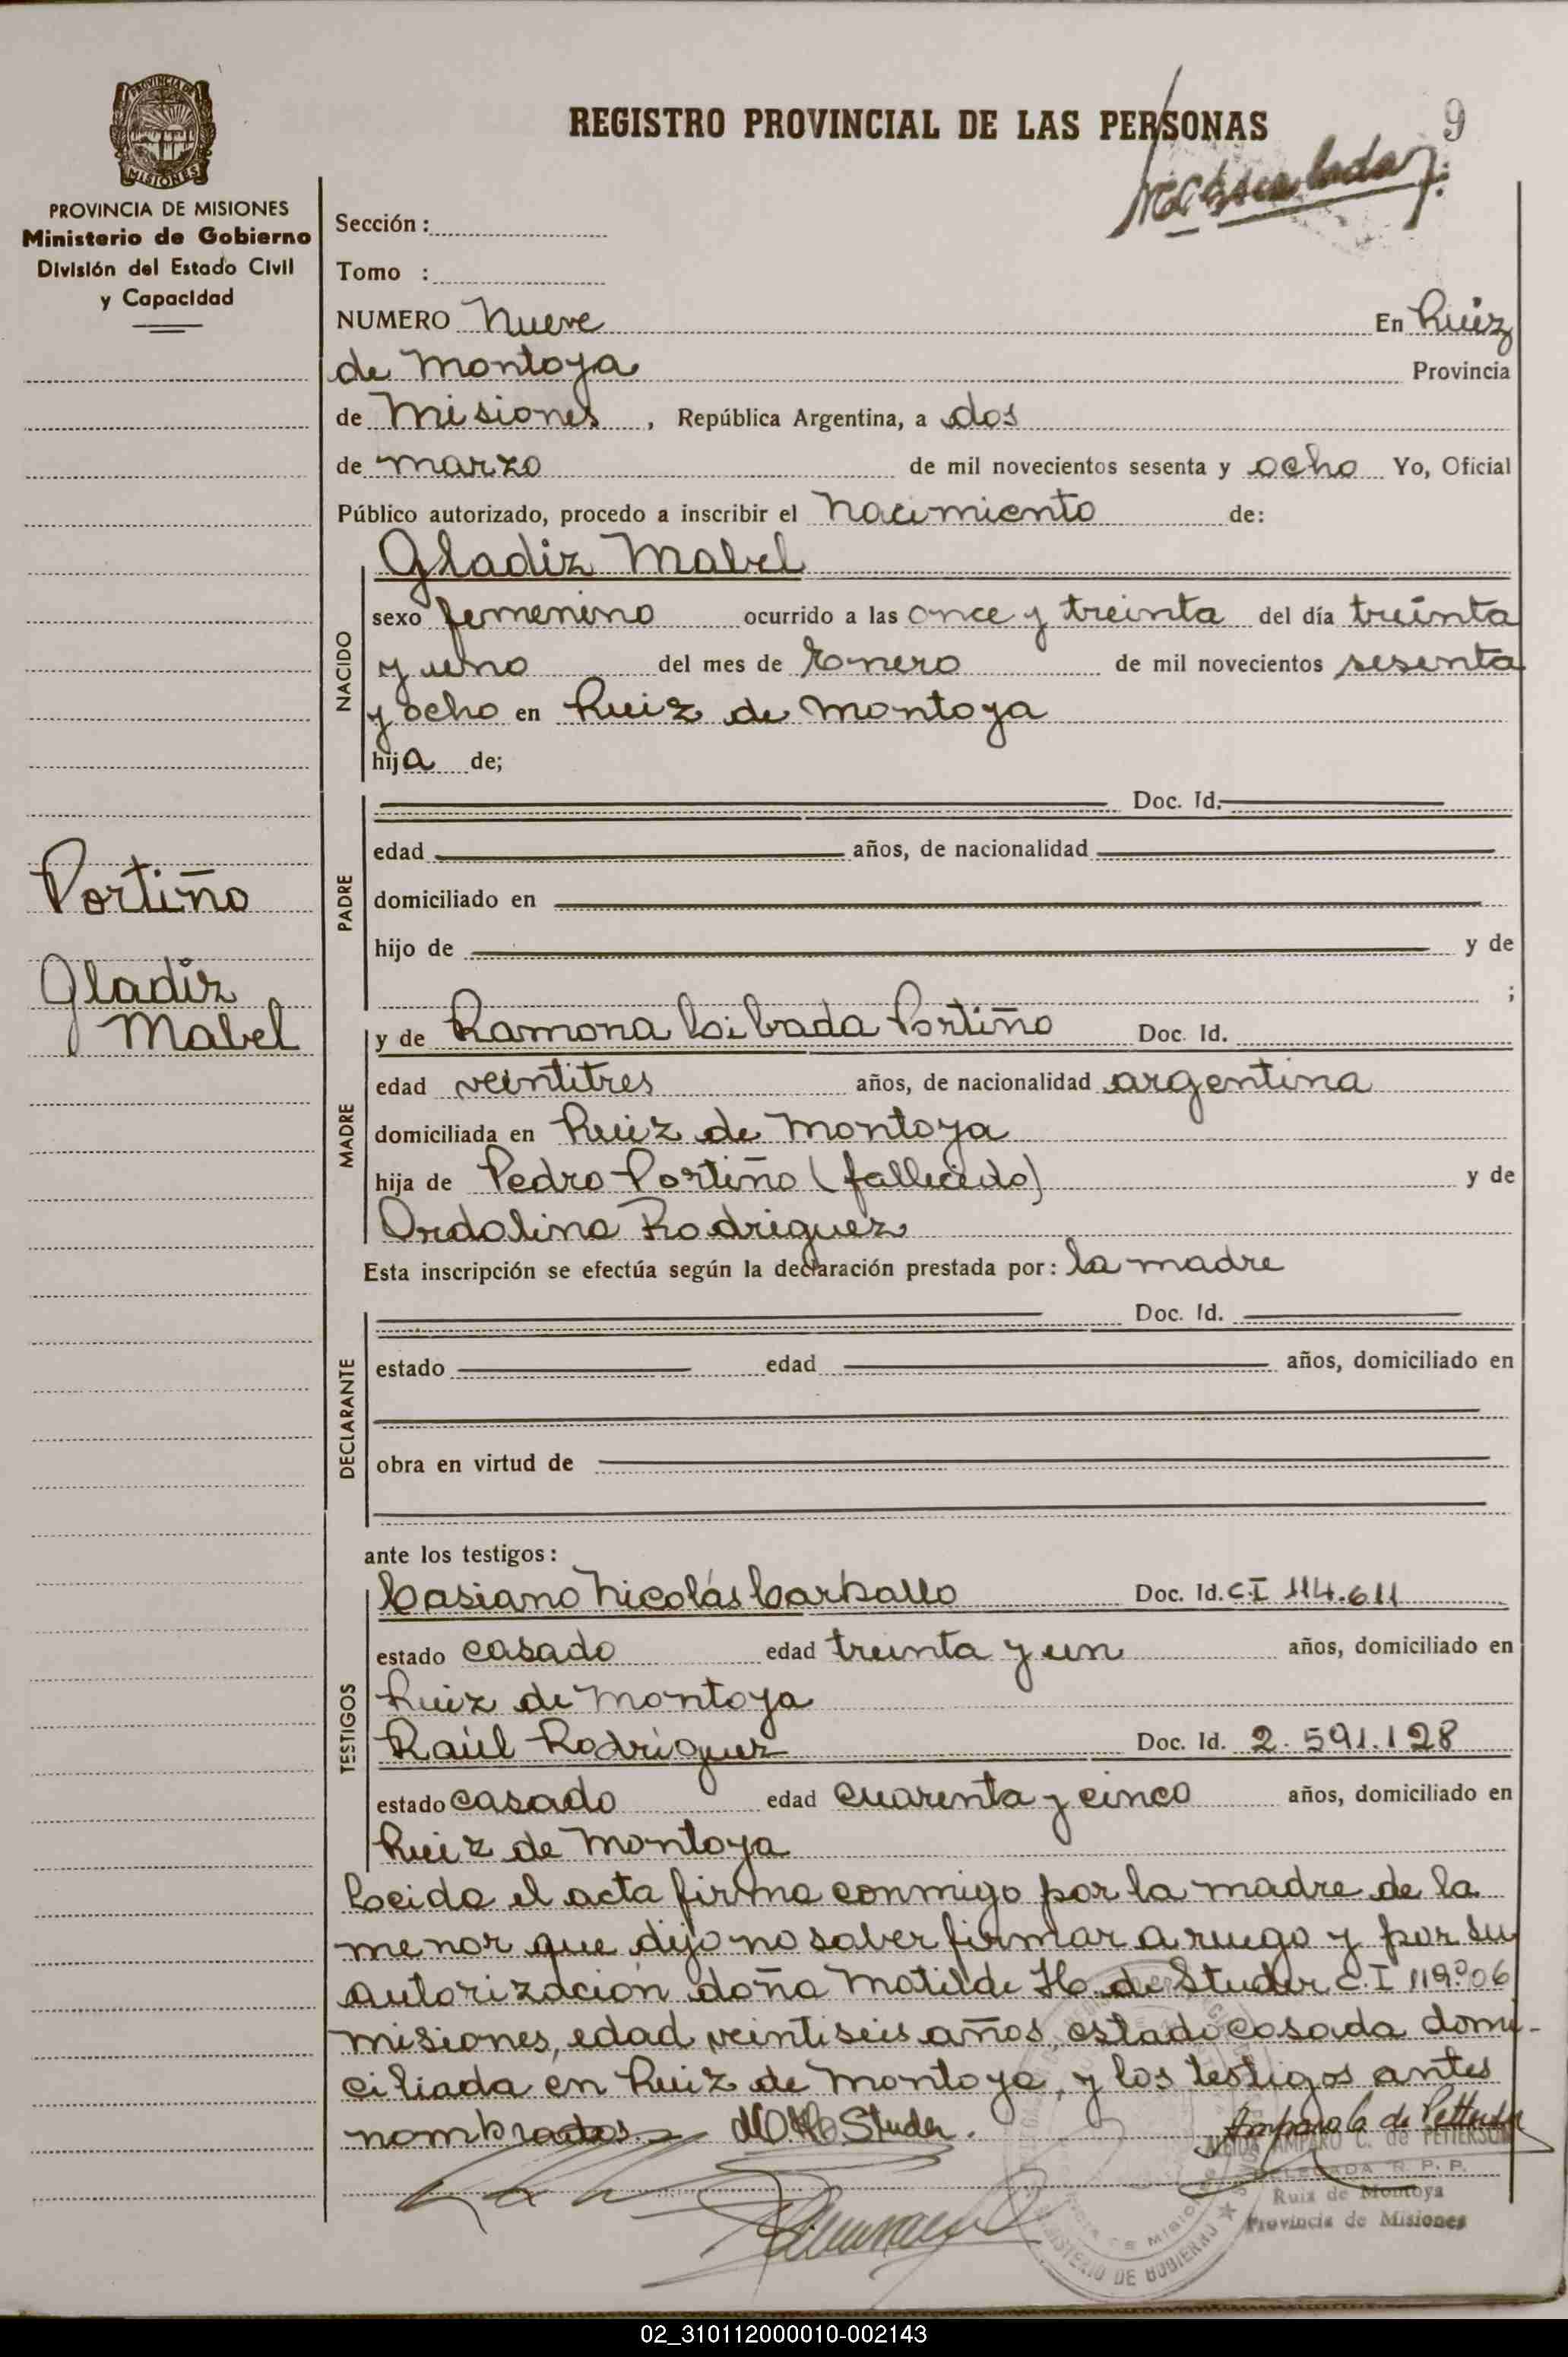 REGISTRO PROVINCIAL DE LAS PERSONAS
9
PROVINCIA DE MISIONES
PROVINCIA DE MISIONES
Ministerio de Gobierno
División del Estado Civil
y Capacidad
Sección :
Tomo :
NUMERO Nueve En Ruiz
de Montoya Provincia
de Misiones , República Argentina, a dos
de marzo de mil novecientos sesenta y ocho Yo, Oficial
Público autorizado, procedo a inscribir el Nacimiento de:
NACIDO
Gladiz Mabel
sexo femenino ocurrido a las once y treinta del día treinta
y uno del mes de Enero de mil novecientos sesenta
y ocho en Ruiz de Montoya
hija de;
PADRE
Doc. Id.
edad años, de nacionalidad
domiciliado en
hijo de y de
;
Portiño
Gladiz
Mabel
MADRE
y de Ramona Portiño Doc. Id.
edad veintitres años, de nacionalidad argentina
domiciliada en Ruiz de Montoya
hija de Pedro Portiño (fallecido) y de
Ordolina Rodriguez
Esta inscripción se efectúa según la declaración prestada por: la madre
DECLARANTE
Doc. Id.
estado edad años, domiciliado en
obra en virtud de
ante los testigos:
TESTIGOS
Casiano Nicolás Carballo Doc. Id. C.I 114.611
estado casado edad treinta y un años, domiciliado en
Ruiz de Montoya
Raúl Rodríguez Doc. Id. 2.591.128
estado casado edad cuarenta y cinco años, domiciliado en
Ruiz de Montoya
Leida el acta firma conmigo por la madre de la
menor que dijo no saber firmar a ruego y por su
autorización doña Matilde H. de Studer C.I
misiones, edad veintiseis años, estado casada domi-
ciliada en Ruiz de Montoya, y los testigos antes
nombrados Studer.
AMPARO C. de PETTERSON
DELEGADA R. P. P.
Ruiz de Montoya
Provincia de Misiones
MINISTERIO DE GOBIERNO
02_310112000010-002143